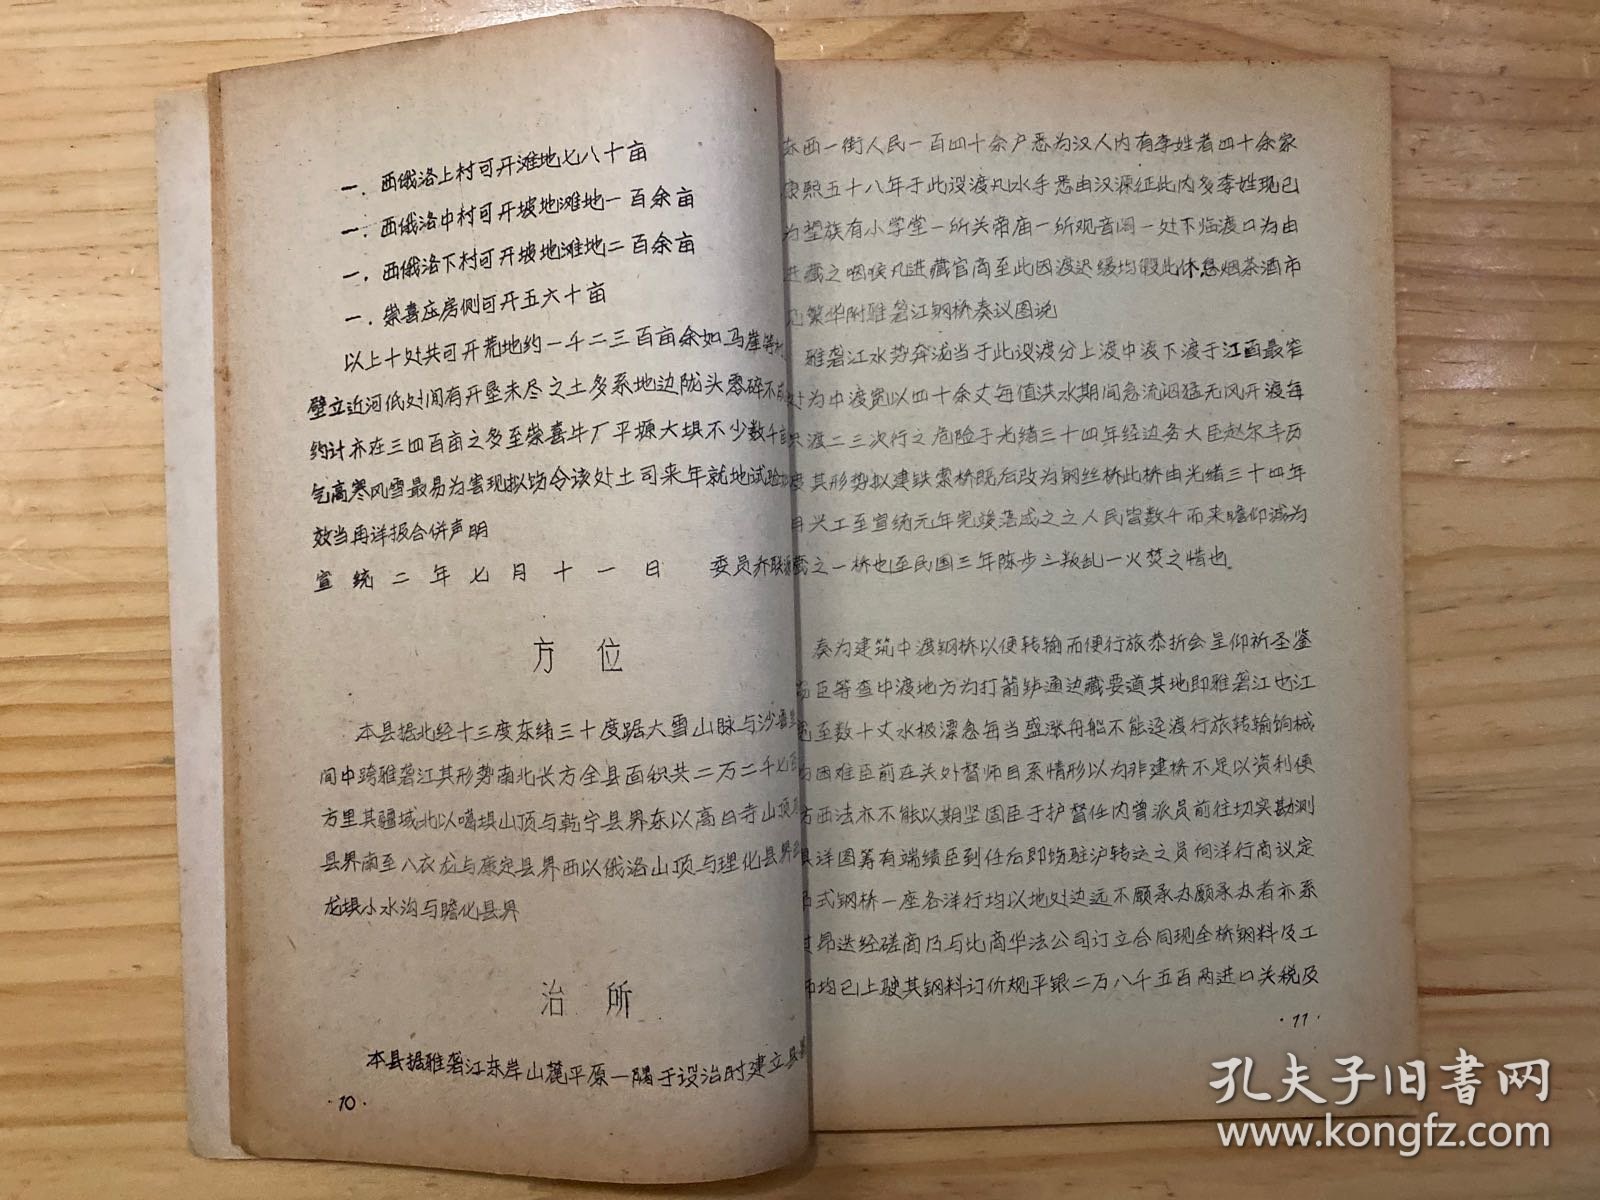 一．西俄洛上村可开滩地七八十亩
一．西俄洛中村可开坡地滩地一百余亩
一．西俄洛下村可开坡地滩地二百余亩
一．崇喜庄房侧可开五六十亩
以上十处共可开荒地约一千二三百亩余如马崖等
壁立近河低处间有开垦未尽之土多系地边陇头零碎不
约计亦在三四百亩之多至崇喜牛厂平塬大坝不少数千
气高寒风雪最易为害现拟饬令该处土司来年就地试验
效当再详报合併声明
宣统二年七月十一日　委员乔联
方位
本县据北经十三度东纬三十度踞大雪山脉与沙
间中跨雅砻江其形势南北长方全县面积共二万二千七
方里其疆域北以噶坝山顶与乾宁县界东以高日寺山顶
县界南至八衣龙与康定县界西以俄洛山顶与理化县界
龙坝小水沟与瞻化县界
治所
本县据雅砻江东岸山麓平原一隅于设治时建立县
·10·
东西一街人民一百四十余户悉为汉人内有李姓者四十余家
康熙五十八年于此设渡凡水手悉由汉源征此内多李姓现已
为望族有小学堂一所关帝庙一所观音阁一处下临渡口为由
进藏之咽侯凡进藏官商至此因渡迟缓均假此休息烟茶酒市
繁华附雅砻江钢桥奏议图说
雅砻江水势奔泷当于此设渡分上渡中渡下渡于江面最窄
为中渡宽以四十余丈每值洪水期间急流汹猛无风开渡每
渡二三次行之危险于光绪三十四年经边务大臣赵尔丰历
度其形势拟建铁索桥既后改为钢丝桥此桥由光绪三十四年
月兴工至宣统元年完竣落成之之人民皆数千而来瞻仰诚为
藏之一桥也至民国三年陈步三叛乱一火焚之惜也
奏为建筑中渡钢桥以便转输而便行旅恭折会呈仰祈圣鉴
臣等查中渡地方为打箭炉通边藏要道其地即雅砻江也江
宽至数十丈水极漂急每当盛涨舟船不能迳渡行旅转输饷械
困难臣前在关外督师目系情形以为非建桥不足以资利便
西法亦不能以期坚固臣于护督任内曾派员前往切实勘测
具详图筹有端绩臣到任后即饬驻沪转运之员向洋行商议定
式钢桥一座各洋行均以地处边远不愿承办愿承办者亦系
昂迭经磋商乃与比商华法公司订立合同现全桥钢料及工
均已上驶其钢料订价规平银二万八千五百两进口关税及
·11·
孔夫子旧书网
www.kongfz.com